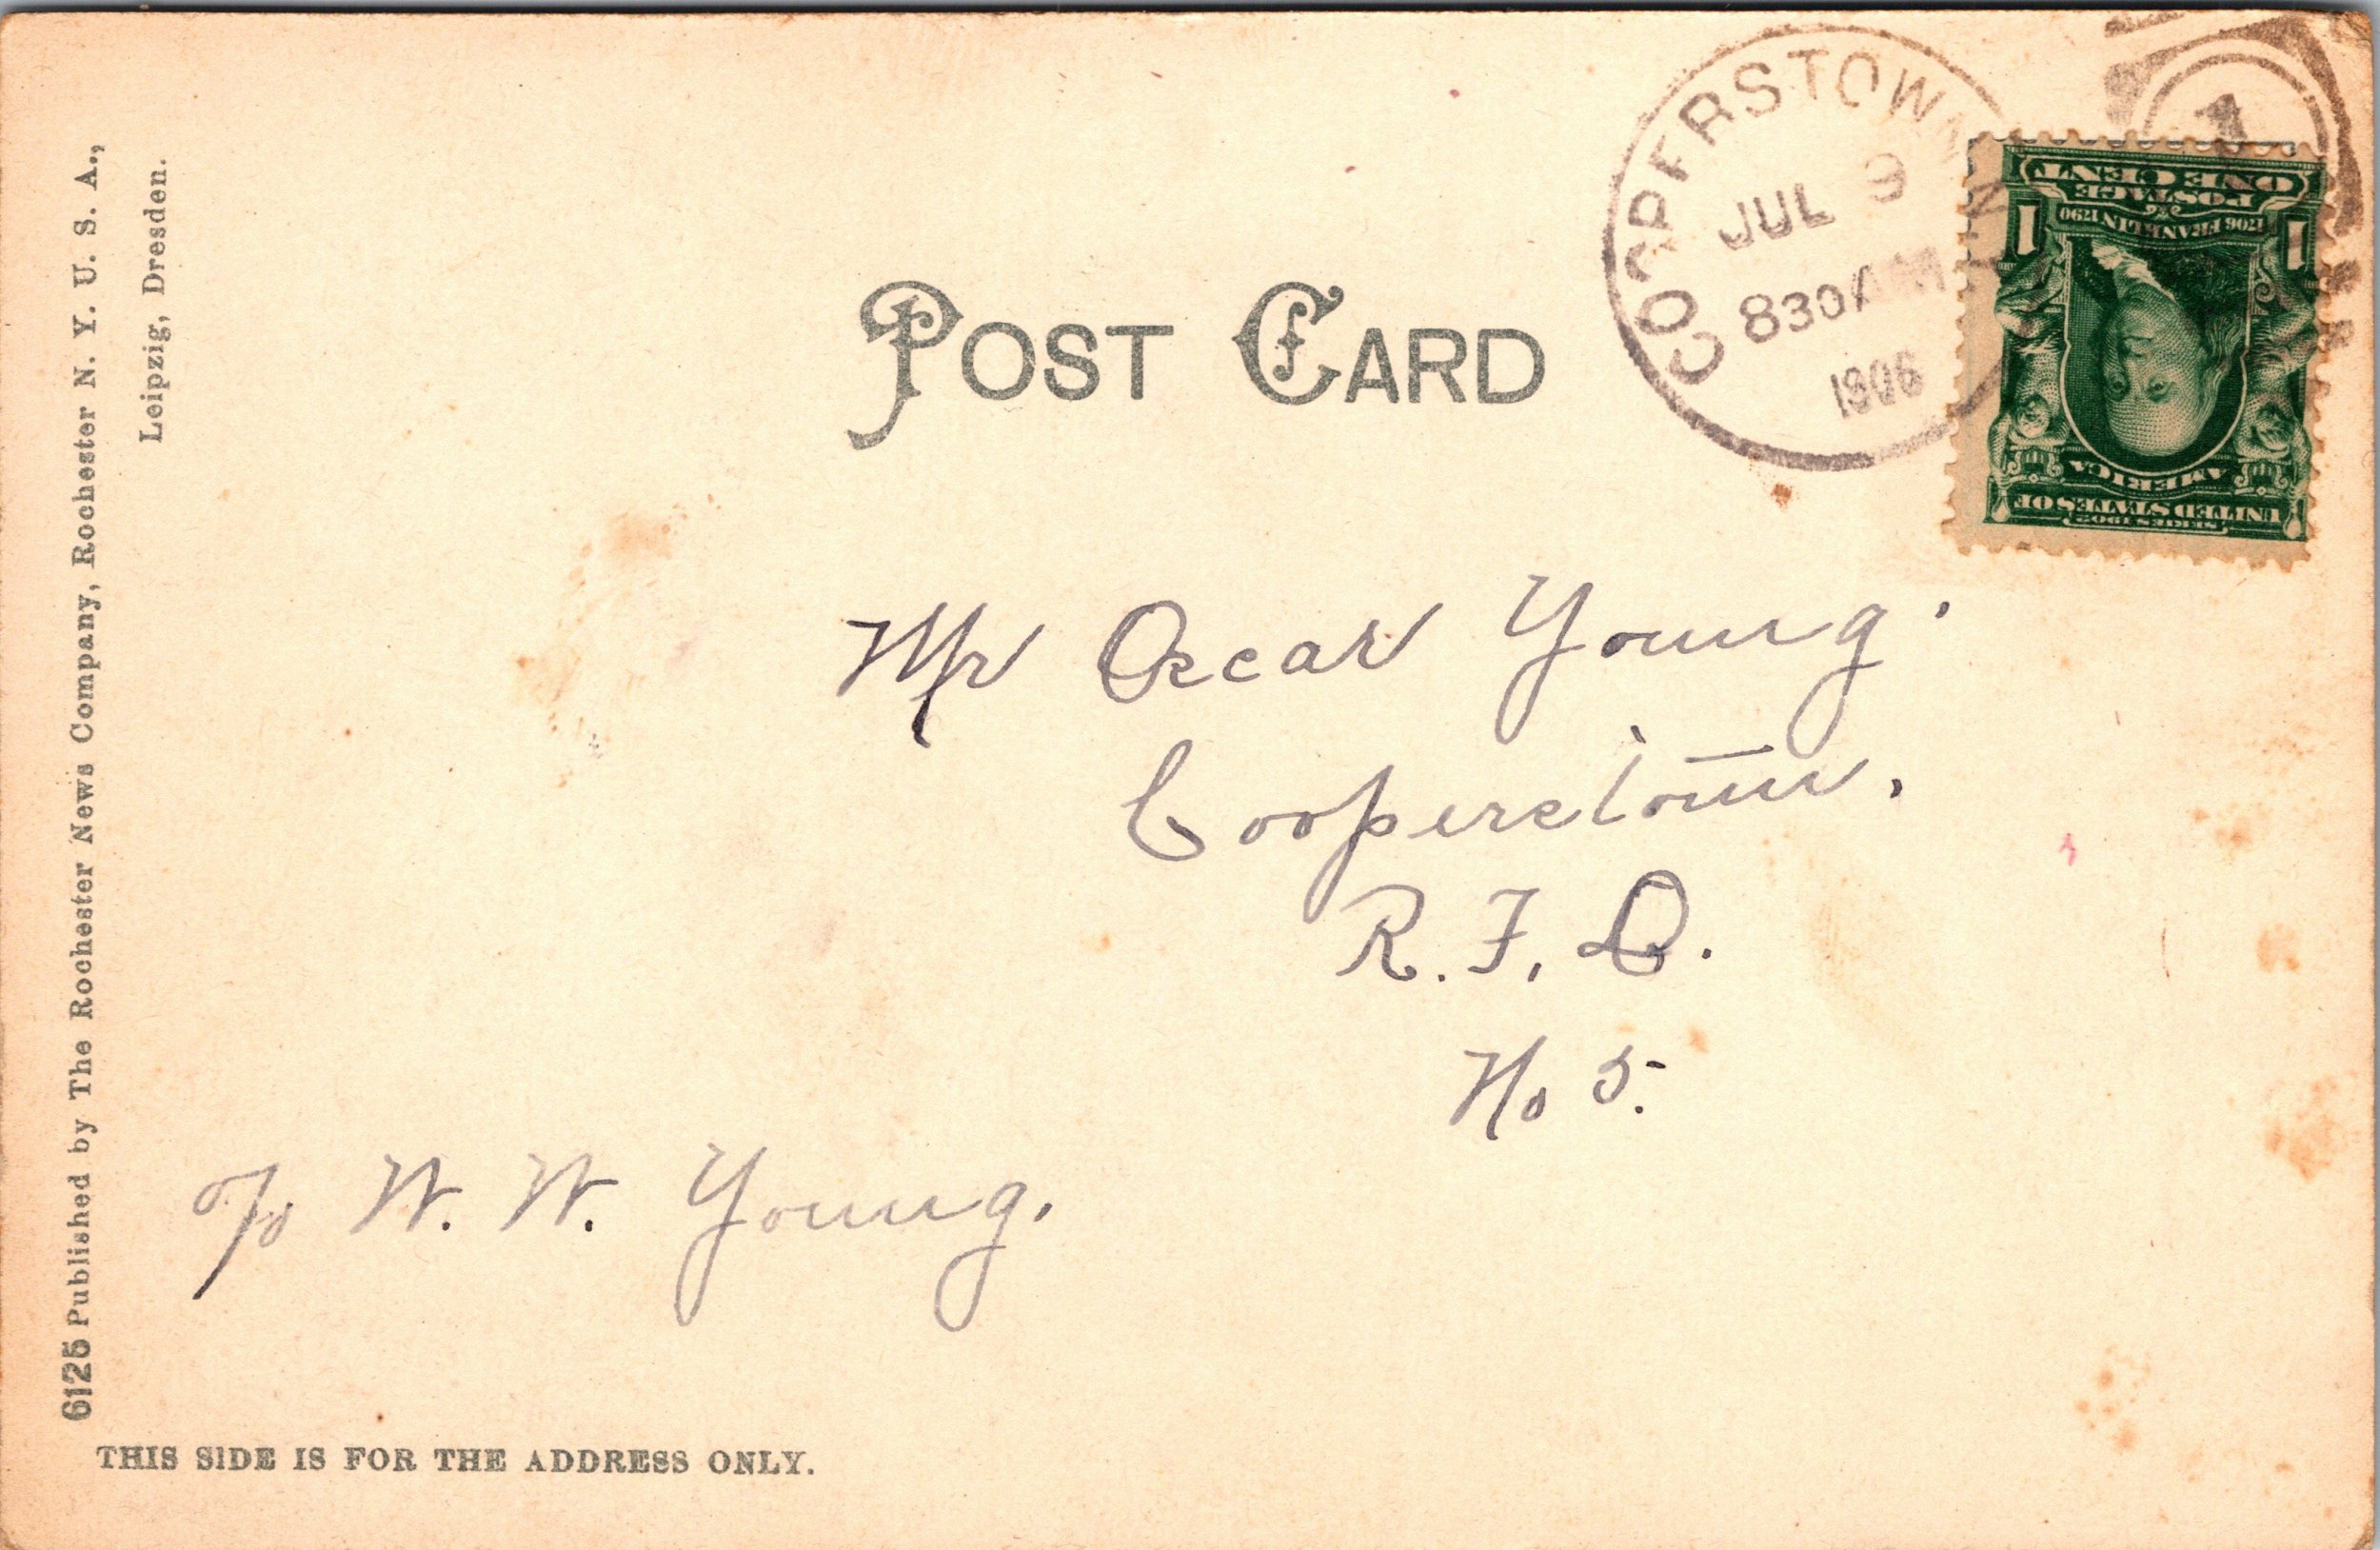 6125 Published by The Rochester News Company, Rochester N. Y. U. S. A.,
Leipzig, Dresden.
POST CARD
COOPERSTOWN
N.Y.
JUL 9
830 AM
1906
1
ONE CENT
POSTAGE
1706 FRANKLIN 1790
1 1
AMERICA
UNITED STATES OF
SERIES 1902
Mr Oscar Young.
Cooperstown.
R. F. D.
No 5.
c/o W. W. Young.
THIS SIDE IS FOR THE ADDRESS ONLY.